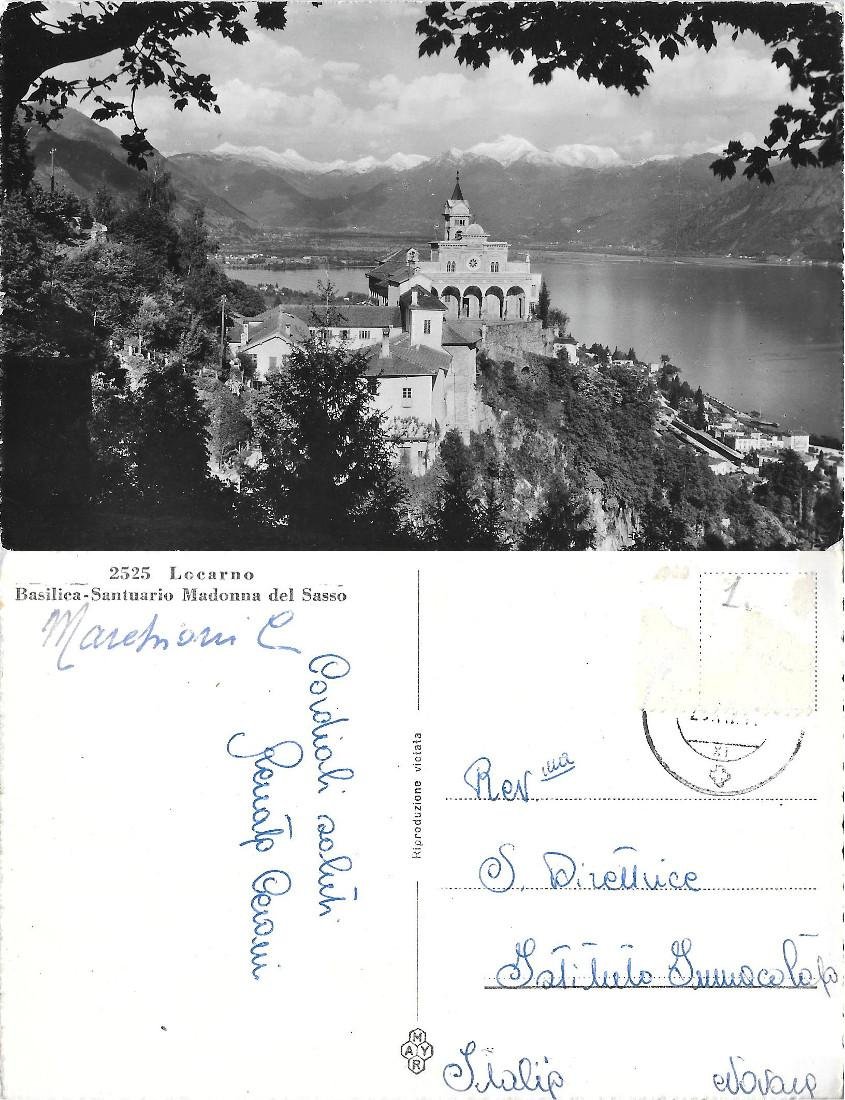 2525 Locarno
Basilica-Santuario Madonna del Sasso
Marchioni C
Cordiali saluti
Renato Gerami
Riproduzione vietata
1.
XI
Rev.ma
S. Direttrice
Istituto Immacolata
Italia Novara
MAYR